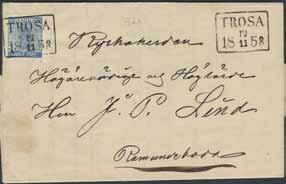 TROSA
12
11
1858
TROSA
12
11
1858
Kyrkoherden
Högärevördige och Höglärde
Herr J. P. Lind
Ramundeboda